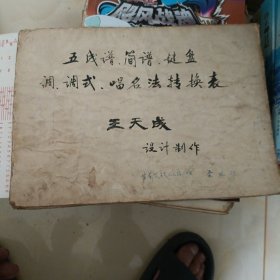 五线谱、简谱、键盘
调、调式、唱名法转换表
王天成
设计制作